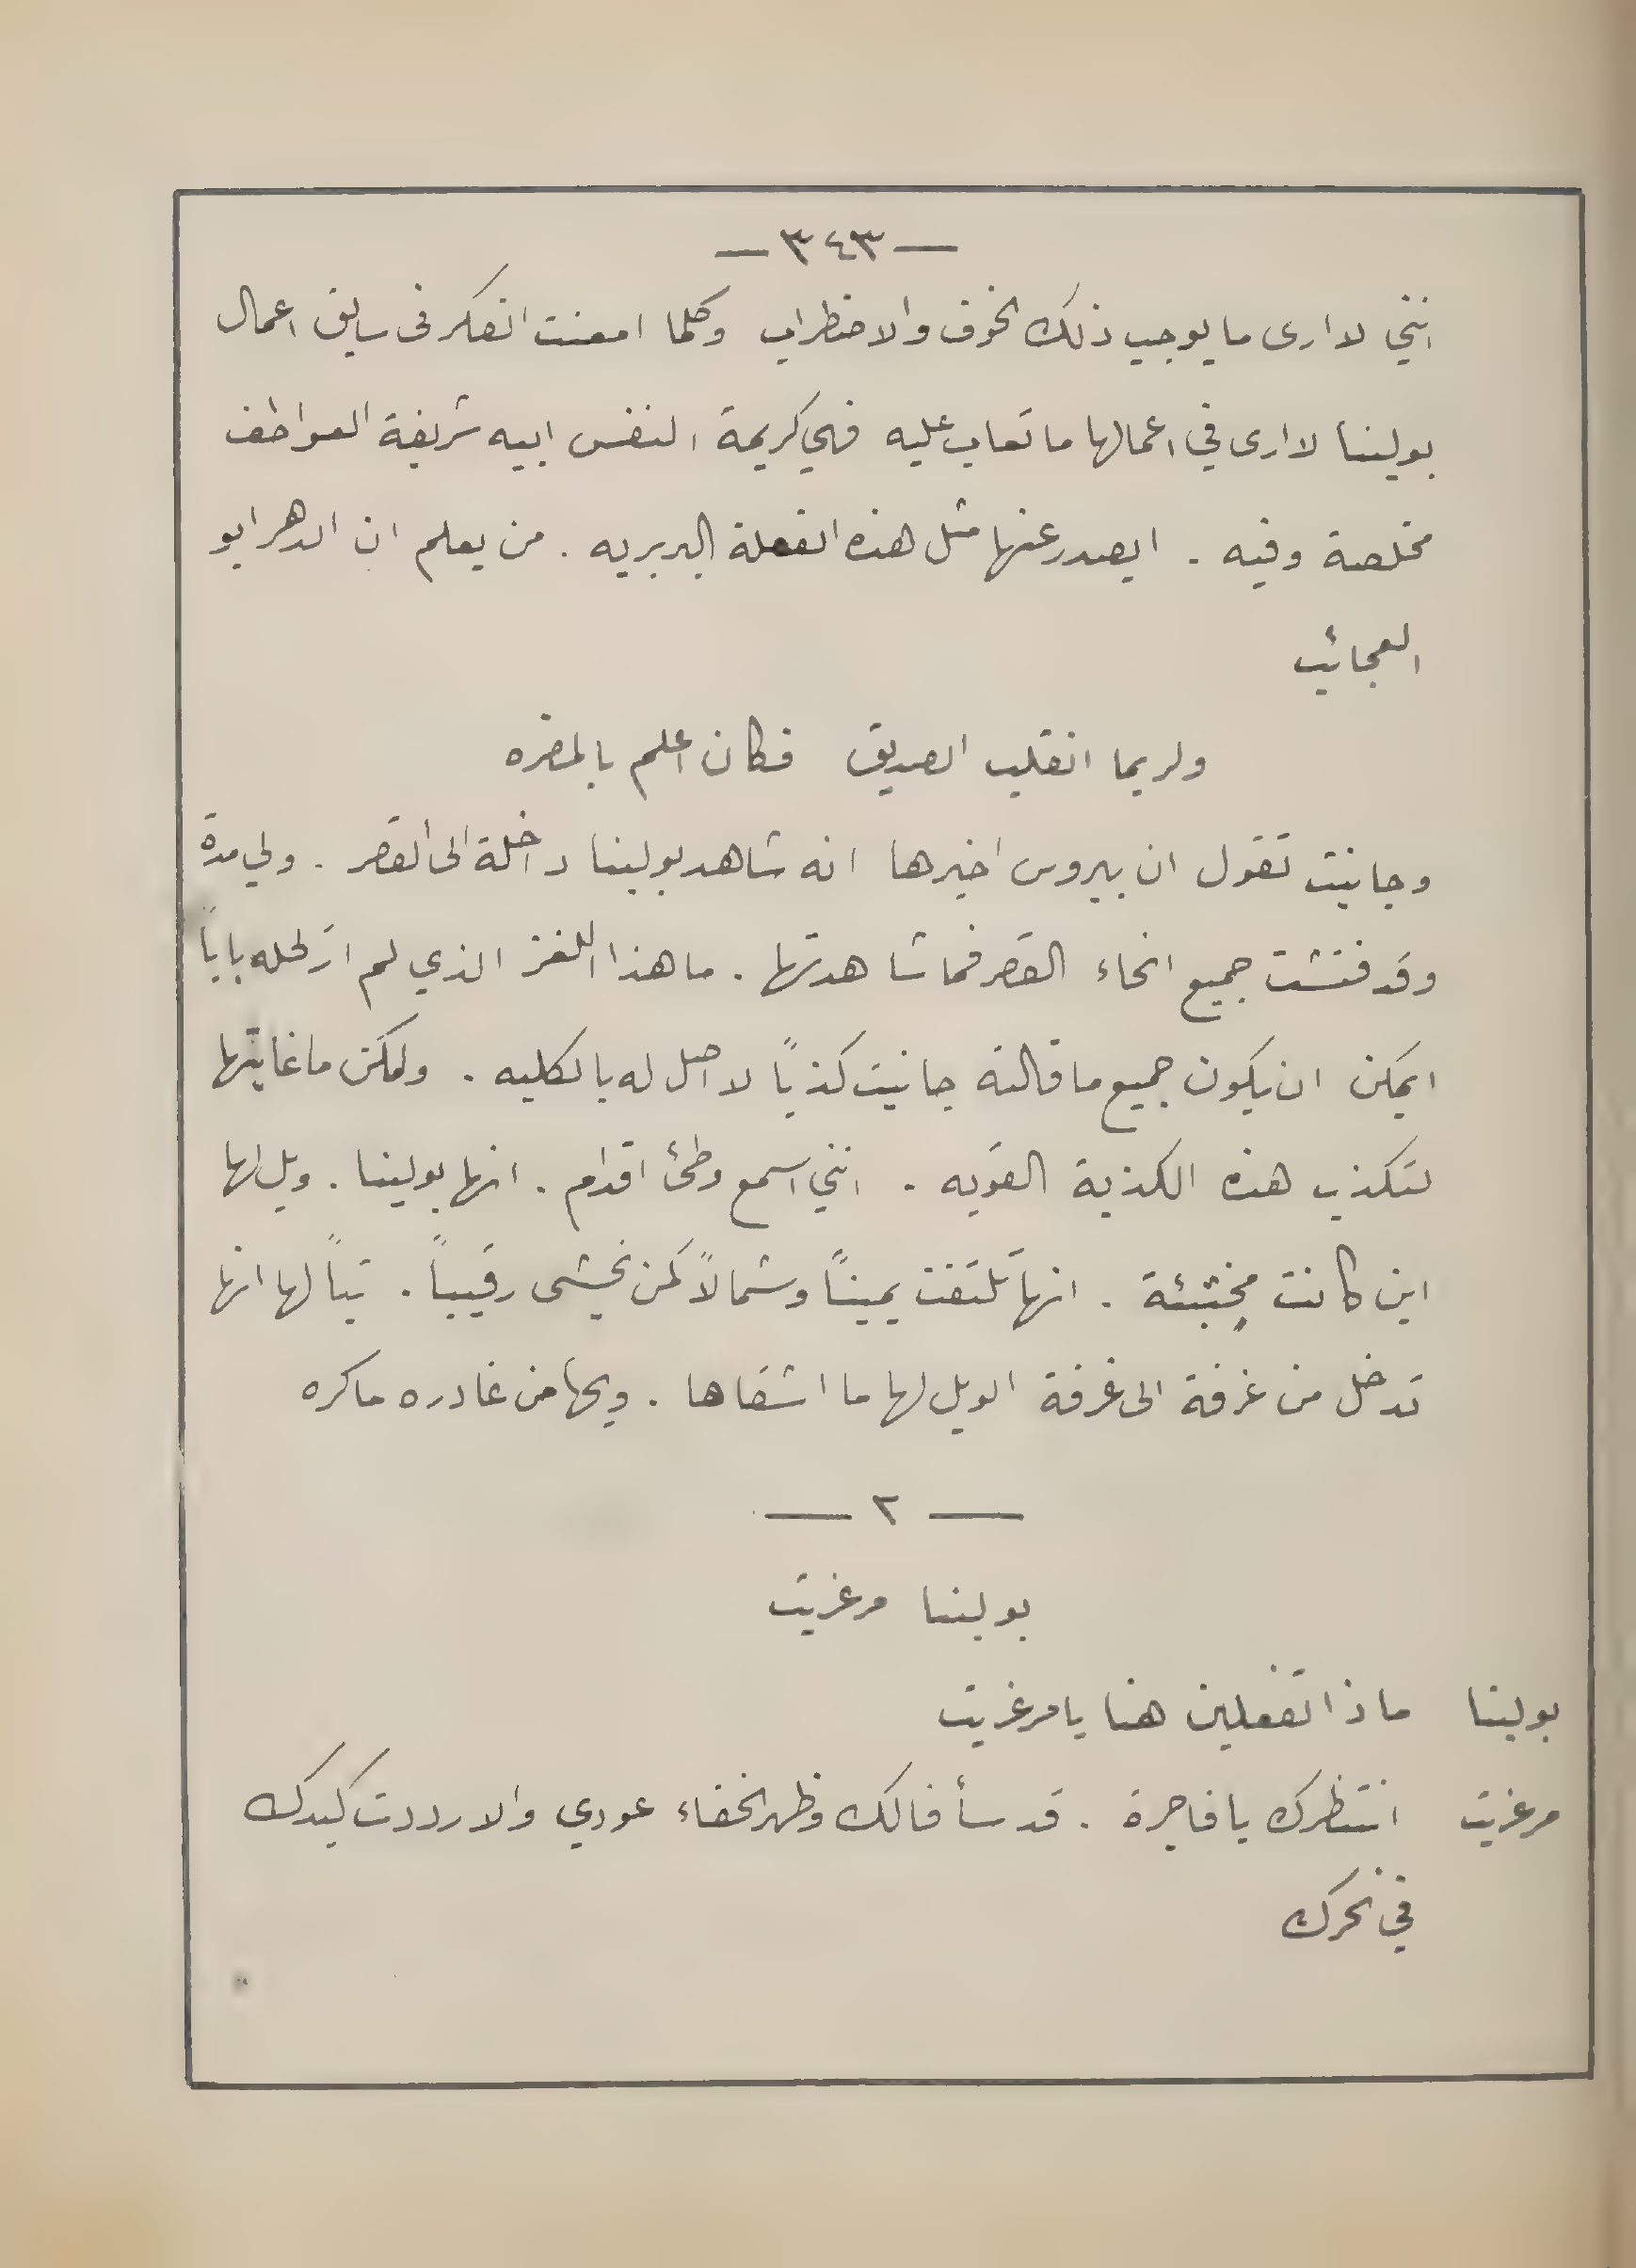 — ٣٤٣ —
انني لا ارى ما يوجب ذلك الخوف والاضطراب وكلما امعنت الفكر فى سابق اعمال
بولينا لا ارى في اعمالها ما تعاب عليه فهي كريمة النفس ابيه شريفة العواطف
مخلصة وفيه . ايصدر عنها مثل هذه الفعلة البربريه . من يعلم ان الدهر ابو
العجائب
ولربما انقلب الصديق فكان اعلم بالمضره
وجانيت تقول ان بيروس اخبرها انه شاهد بولينا داخلة الى القصر . ولي مدة
وقد فتشت جميع انحاء القصر فما شاهدتها . ما هذا اللغز الذي لم ارَ لحله باباً
ايمكن ان يكون جميع ما قالته جانيت كذباً لا اصل له بالكليه . ولكن ما غايتها
لتكذب هذه الكذبة القويه . انني اسمع وطئ اقدام . انها بولينا . ويل لها
اين كانت مختبئة . انها تلتفت يميناً وشمالاً كمن يخشى رقيباً . تباً لها انها
تدخل من غرفة الى غرفة الويل لها ما اشقاها . ويحها من غادره ماكره
— ٢ —
بولينا مرغريت
بولينا ماذا تفعلين هنا يا مرغريت
مرغريت انتظرك يا فاجرة . قد سأ فالك وظهر الخفاء عودي والا رددت كيدك
في نحرك